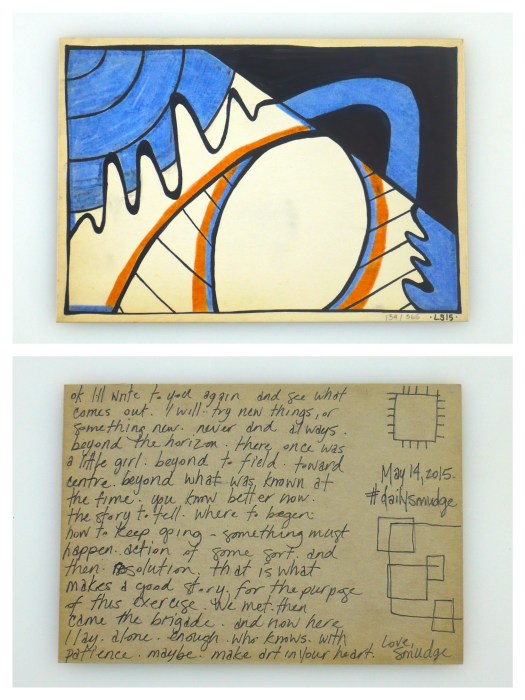 134/365 · LS15 ·
ok I'll write to you again and see what
comes out. I will try new things, or
something new. never and always.
beyond the horizon. there, once was
a little girl. beyond to field. toward
centre. beyond what was known at
the time. you know better now.
the story to tell. where to begin.
how to keep going - something must
happen. action of some sort. and
then. Resolution. that is what
makes a good story. for the purpose
of this exercise. We met. then
came the brigade. and now here
I lay. alone. enough. who knows. with
patience. maybe. make art in your heart.
May 14, 2015.
#dailysmudge
Love,
Smudge